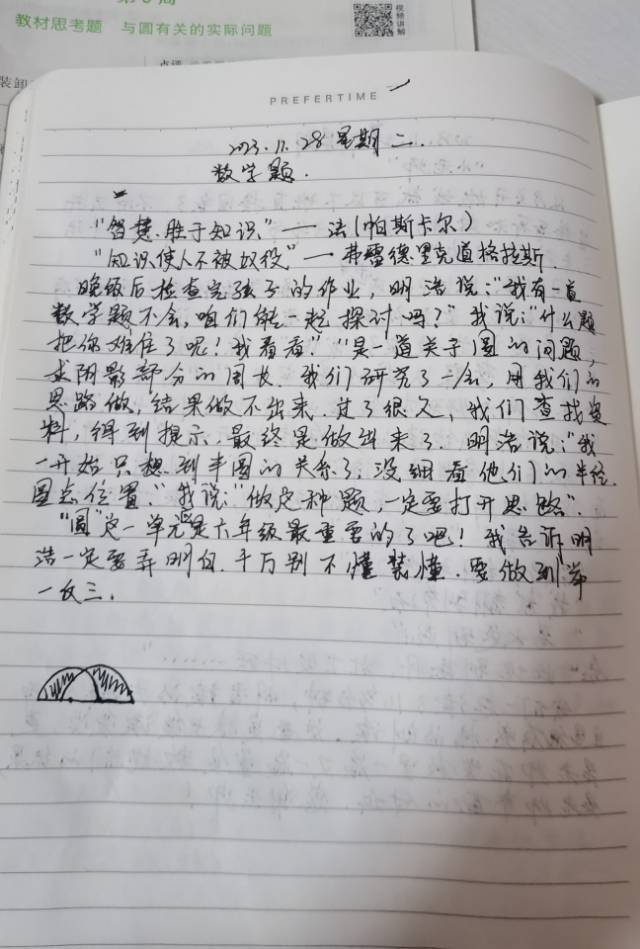 教材思考题 与圆有关的实际问题
视频讲解
PREFERTIME
2023.11.28 星期二.
数学题.
"智慧.胜于知识"——法(帕斯卡尔)
"知识使人不被奴役"—弗雷德里克道格拉斯.
晚饭后检查完孩子的作业，明浩说："我有一道
数学题不会，咱们能一起探讨吗？"我说："什么题
把你难住了呢！我看看！""是一道关于圆的问题，
求阴影部分的周长.我们研究了一会，用我们的
思路做，结果做不出来.过了很久，我们查找资
料，得到提示.最终是做出来了.明浩说："我
一开始只想到半圆的关系了，没细看他们的半径.
圆心位置."我说："做这种题，一定要打开思路".
"圆"这一单元是六年级最重要的了吧！我告诉明
浩一定要弄明白.千万别不懂装懂.要做到举
一反三.